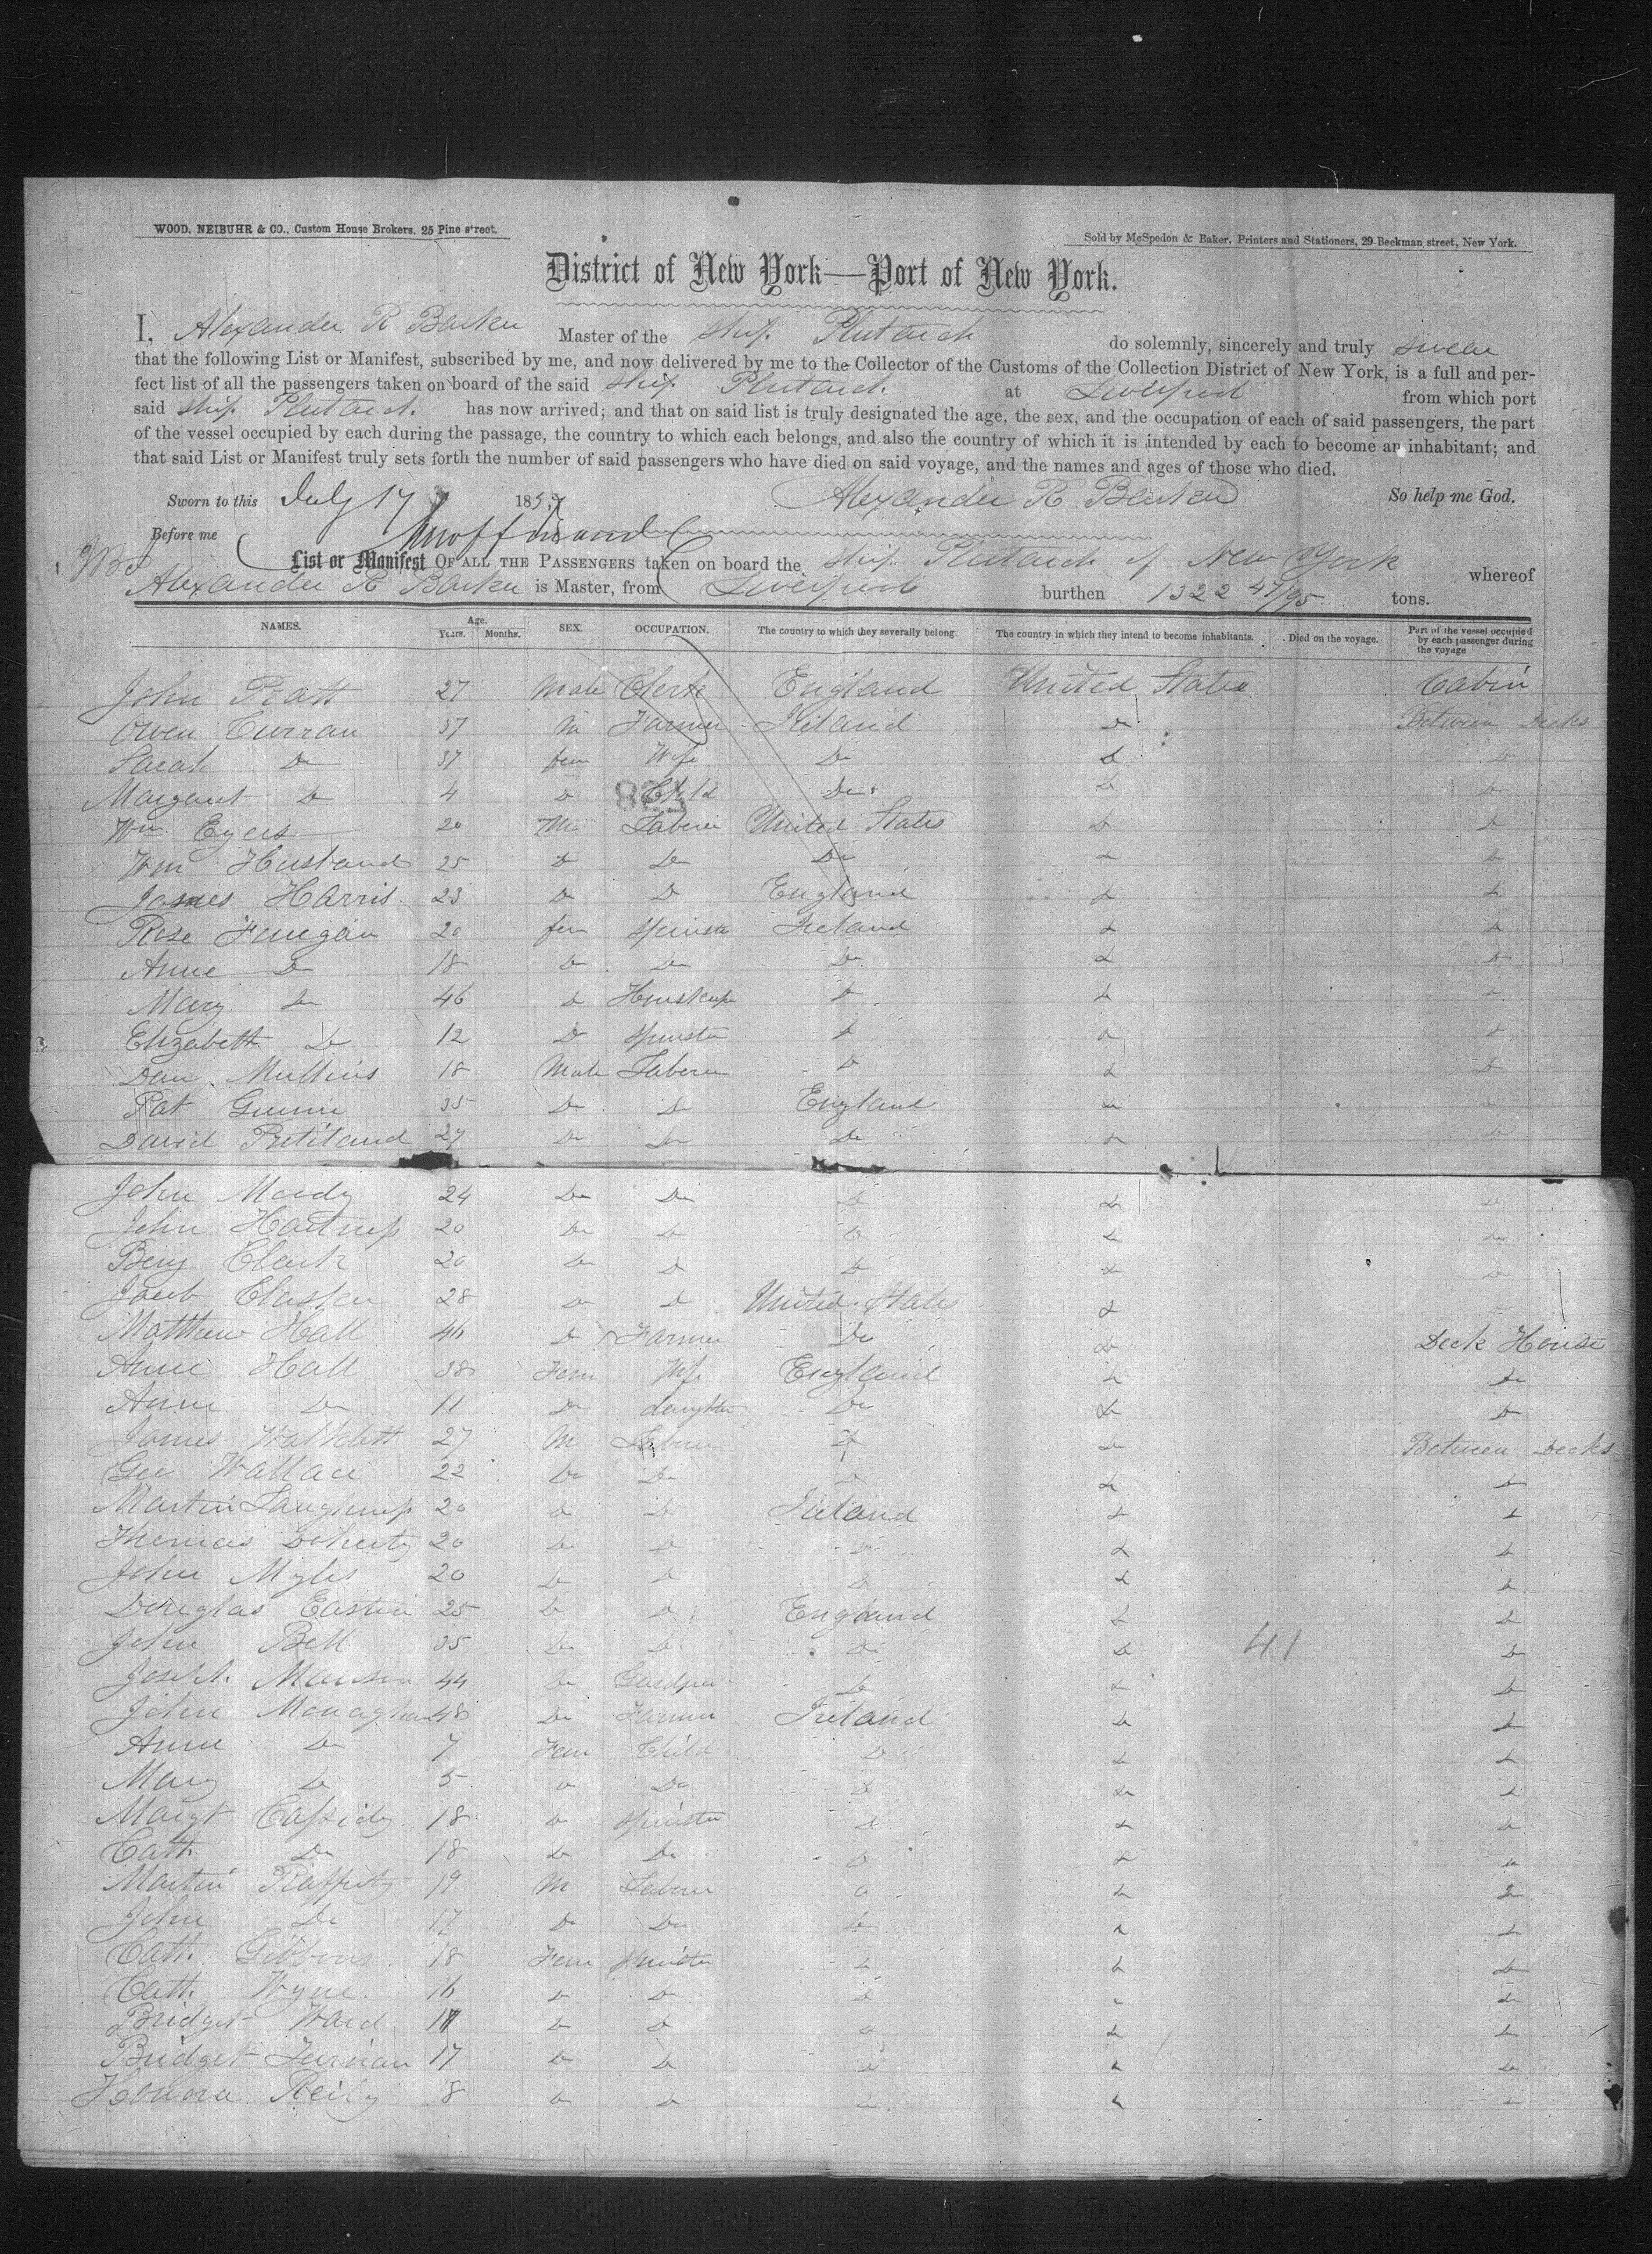 WOOD, NEIBUHR & CO., Custom House Brokers, 25 Pine street.
Sold by McSpedon & Baker, Printers and Stationers, 29 Beekman street, New York.
District of New York—Port of New York.
I, Alexander R Barker Master of the ship Plutarch do solemnly, sincerely and truly swear
that the following List or Manifest, subscribed by me, and now delivered by me to the Collector of the Customs of the Collection District of New York, is a full and per-
fect list of all the passengers taken on board of the said ship Plutarch at Liverpool from which port
said ship Plutarch has now arrived; and that on said list is truly designated the age, the sex, and the occupation of each of said passengers, the part
of the vessel occupied by each during the passage, the country to which each belongs, and also the country of which it is intended by each to become an inhabitant; and
that said List or Manifest truly sets forth the number of said passengers who have died on said voyage, and the names and ages of those who died.
Sworn to this July 17 1857 Alexander R Barker So help me God.
Before me
List or Manifest OF ALL THE PASSENGERS taken on board the ship Plutarch of New York whereof
Alexander R Barker is Master, from Liverpool burthen 1322 47/95 tons.
NAMES. Age. Years. Months. SEX. OCCUPATION. The country to which they severally belong. The country in which they intend to become inhabitants. Died on the voyage. Part of the vessel occupied by each passenger during the voyage
John Pratt 27 Male Clerk England United States Cabin
Owen Curran 37 M Farmer Ireland Do Between Decks
Sarah Do 37 fem Wife Do Do Do
Margaret Do 4 Do Child Do Do Do
Wm Eyers 20 Ma Laborer United States Do Do
Wm Husband 25 Do Do Do Do Do
James Harris 23 Do Do England Do Do
Rose Finegan 20 fem Spinster Ireland Do Do
Anne Do 18 Do Do Do Do Do
Mary Do 46 Do Houskeepr Do Do Do
Elizabeth Do 12 Do Spinster Do Do Do
Dan Mullins 18 Male Laborer Do Do Do
Pat 35 Do Do England Do Do
David 27 Do Do Do Do Do
John Moody 24 Do Do Do Do Do
John Hartrup 20 Do Do Do Do Do
Benj Clark 20 Do Do Do Do Do
Jacob 28 Do Do United States Do
Matthew Hall 46 Do Farmer Do Do Deck House
Anne Hall 38 Fem Wife England Do Do
Anne Do 11 Do daughter Do Do Do
James 27 M Laborer Do Do Between Decks
Geo Wallace 22 Do Do Do Do Do
Martin 20 Do Do Ireland Do Do
Thomas Doherty 20 Do Do Do Do Do
John Myles 20 Do Do Do Do Do
Douglas 25 Do Do England Do Do
John Bell 35 Do Do Do Do 41 Do
Joseph 44 Do Do Do Do
John Monaghan 48 Do Farmer Ireland Do Do
Anne Do 7 Fem Child Do Do Do
Mary Do 5 Do Do Do Do Do
Margt Cassidy 18 Do Spinster Do Do Do
Cath Do 18 Do Do Do Do Do
Martin Rafferty 19 M Laborer Do Do Do
John Do 17 Do Do Do Do Do
Cath. Gibbons 18 Fem Spinster Do Do Do
Cath. Wyne 16 Do Do Do Do Do
Bridget Ward 17 Do Do Do Do Do
Bridget 17 Do Do Do Do Do
Honora Reily 8 Do Do Do Do Do